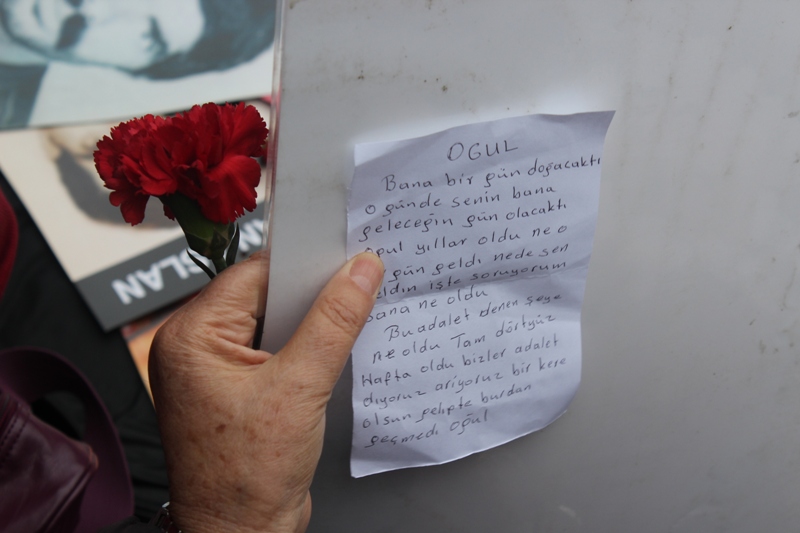 OGUL
Bana bir gün doğacaktı
o günde senin bana
geleceğin gün olacaktı
yıllar oldu ne o
gün geldi nede sen
geldin işte soruyorum
sana ne oldu
Bu adalet denen şeye
ne oldu Tam dörtyüz
Hafta oldu bizler adalet
diyoruz ariyoruz bir kere
olsun gelipte burdan
geçmedi oğul
SLAN